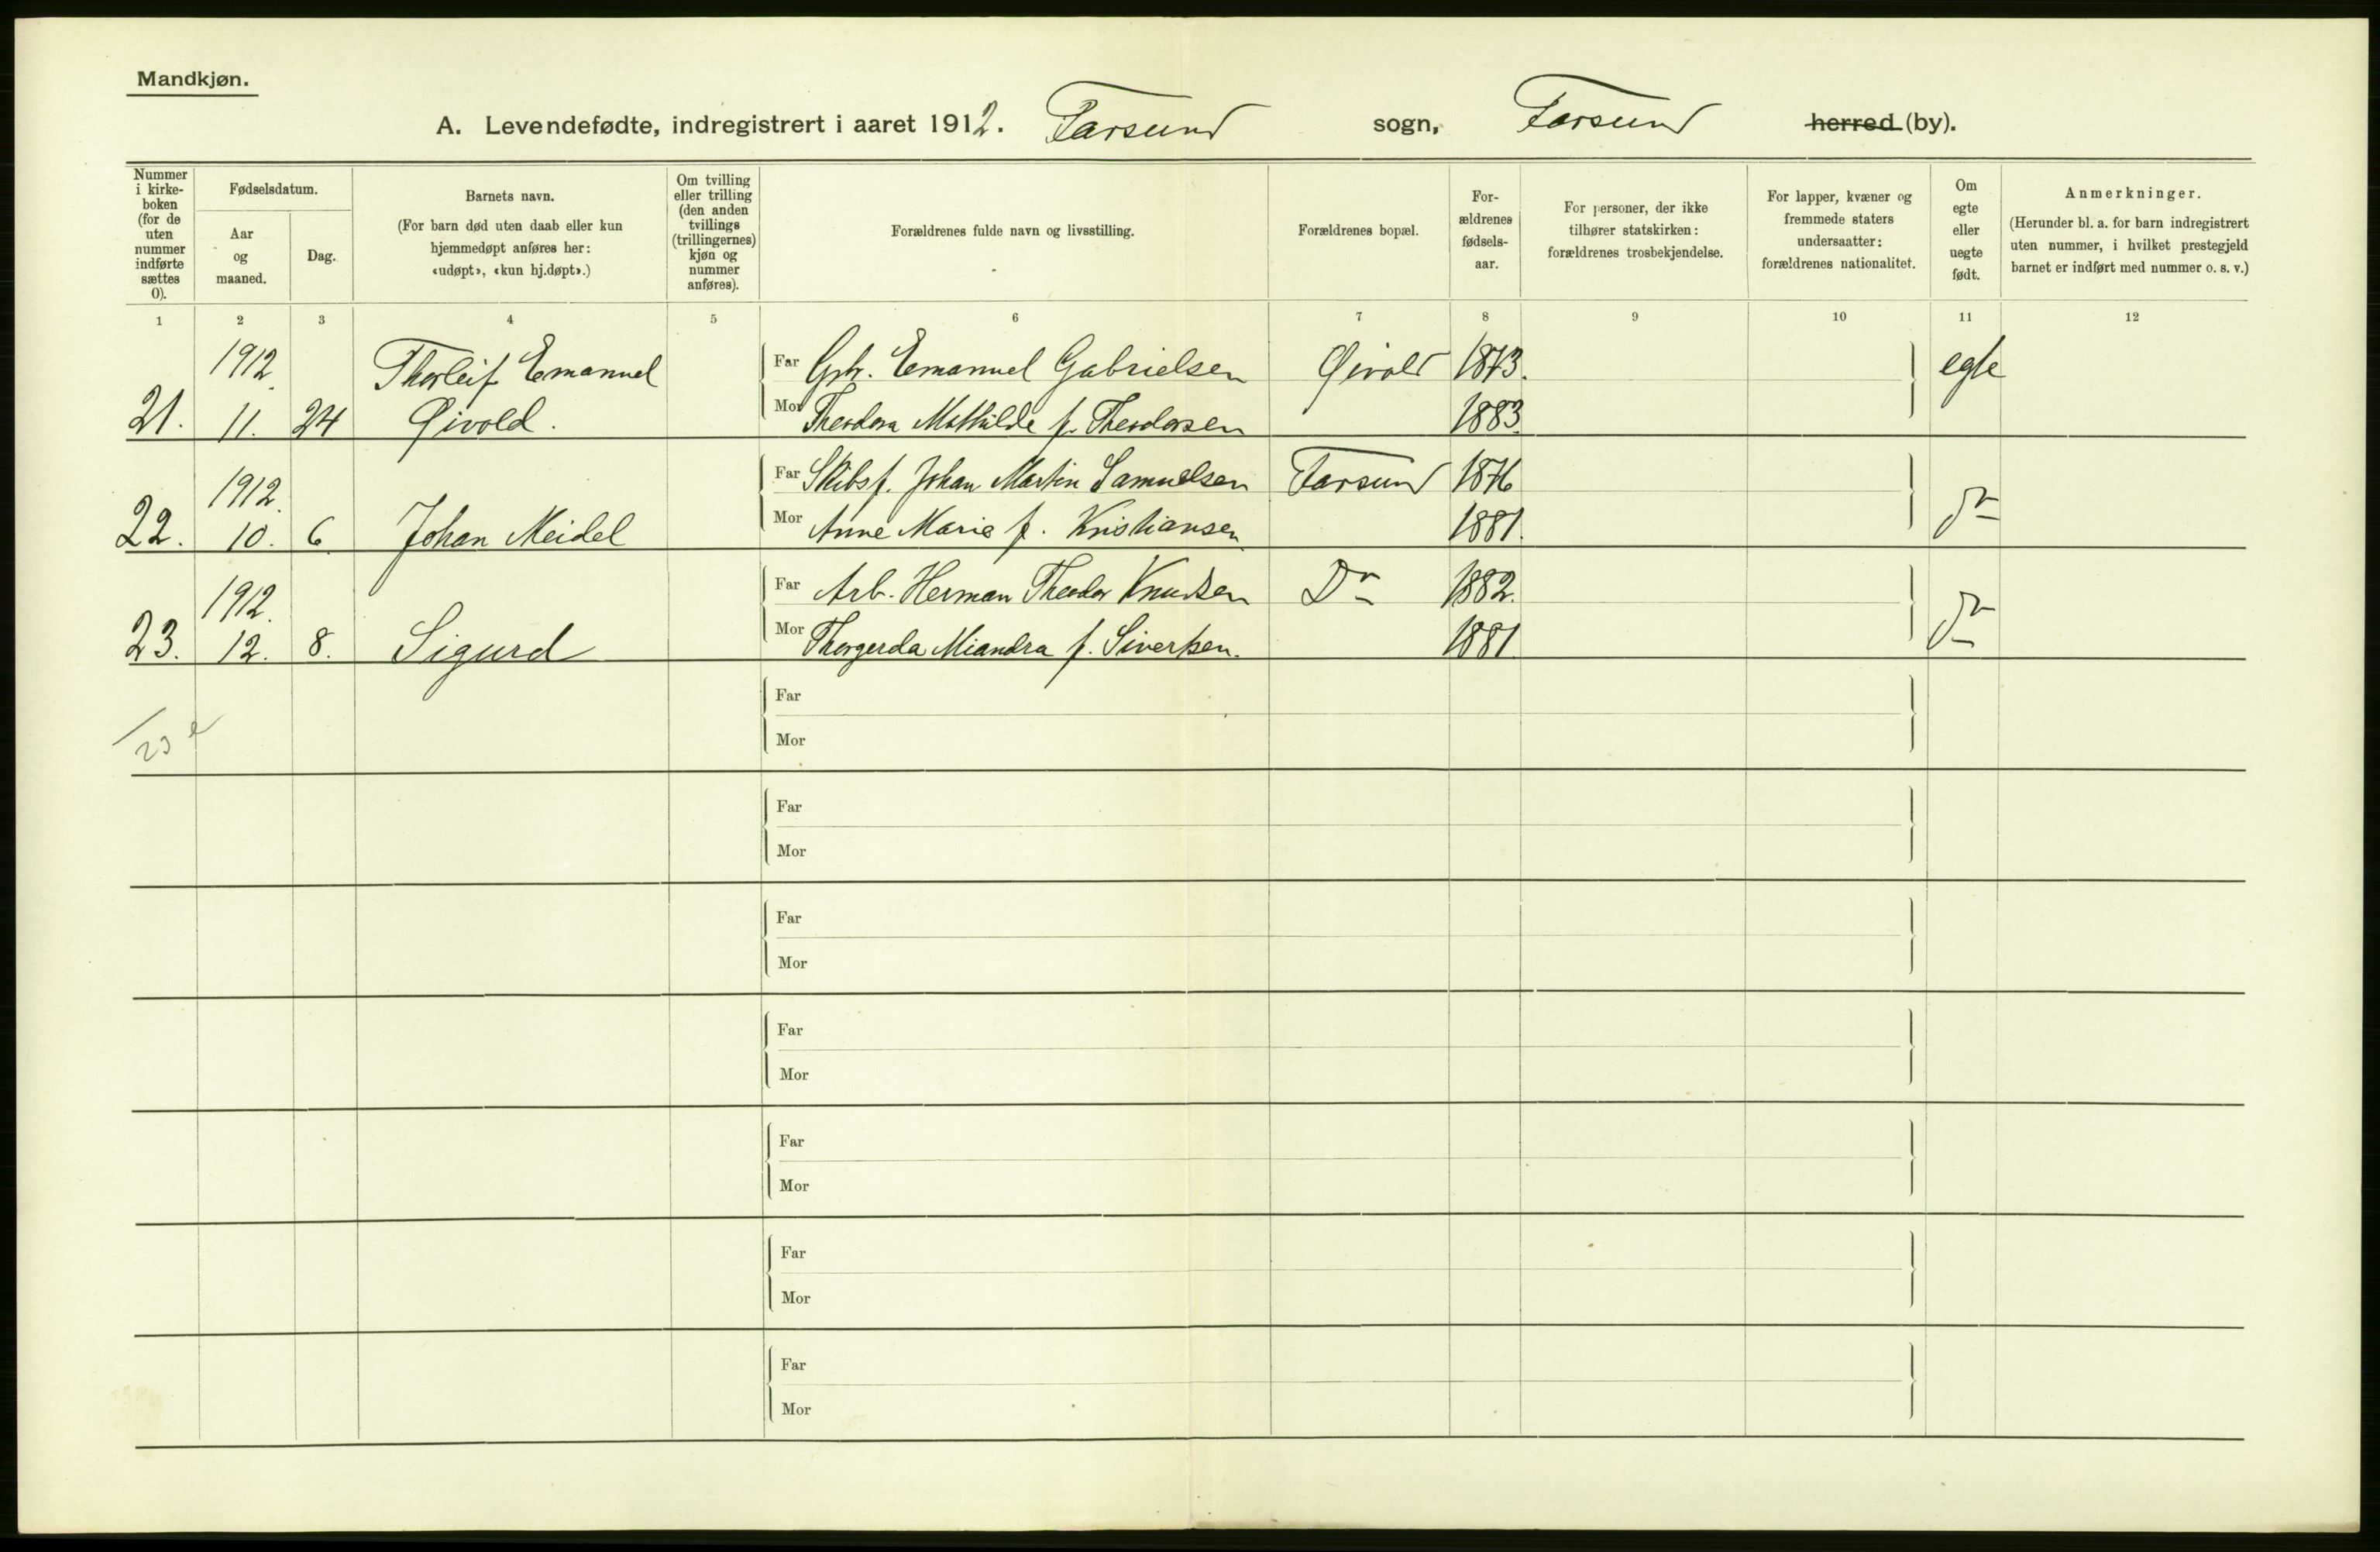 Mandkjøn.
A. Levendefødte, indregistrert i aaret 1912. Farsund sogn, Farsund herred (by).
Nummer i kirke-boken (for de uten nummer indførte sættes 0).
Fødselsdatum.
Aar og maaned.
Dag.
Barnets navn.
(For barn død uten daab eller kun hjemmedøpt anføres her: «udøpt», «kun hj.døpt».)
Om tvilling eller trilling (den anden tvillings (trillingernes) kjøn og nummer anføres).
Forældrenes fulde navn og livsstilling.
Forældrenes bopæl.
For-ældrenes fødsels-aar.
For personer, der ikke tilhører statskirken: forældrenes trosbekjendelse.
For lapper, kvæner og fremmede staters undersaatter: forældrenes nationalitet.
Om egte eller uegte født.
Anmerkninger.
(Herunder bl. a. for barn indregistrert uten nummer, i hvilket prestegjeld barnet er indført med nummer o. s. v.)
1 2 3 4 5 6 7 8 9 10 11 12
1912. Thorleif Emanuel Far Gbr. Emanuel Gabrielsen Øivold 1873. egte
21. 11. 24 Øivold. Mor Theodora Mathilde f. Theodorsen 1883.
1912. Far Skibsf. Johan Martin Samuelsen Farsund 1876
22. 10. 6. Johan Meidel Mor Anne Marie f. Kristiansen. 1881. do
1912. Far Arb. Herman Theodor Knudsen Do 1882.
23. 12. 8. Sigurd Mor Thorgerda Miandra f. Sivertsen. 1881. do
Far
23
Mor
Far
Mor
Far
Mor
Far
Mor
Far
Mor
Far
Mor
Far
Mor